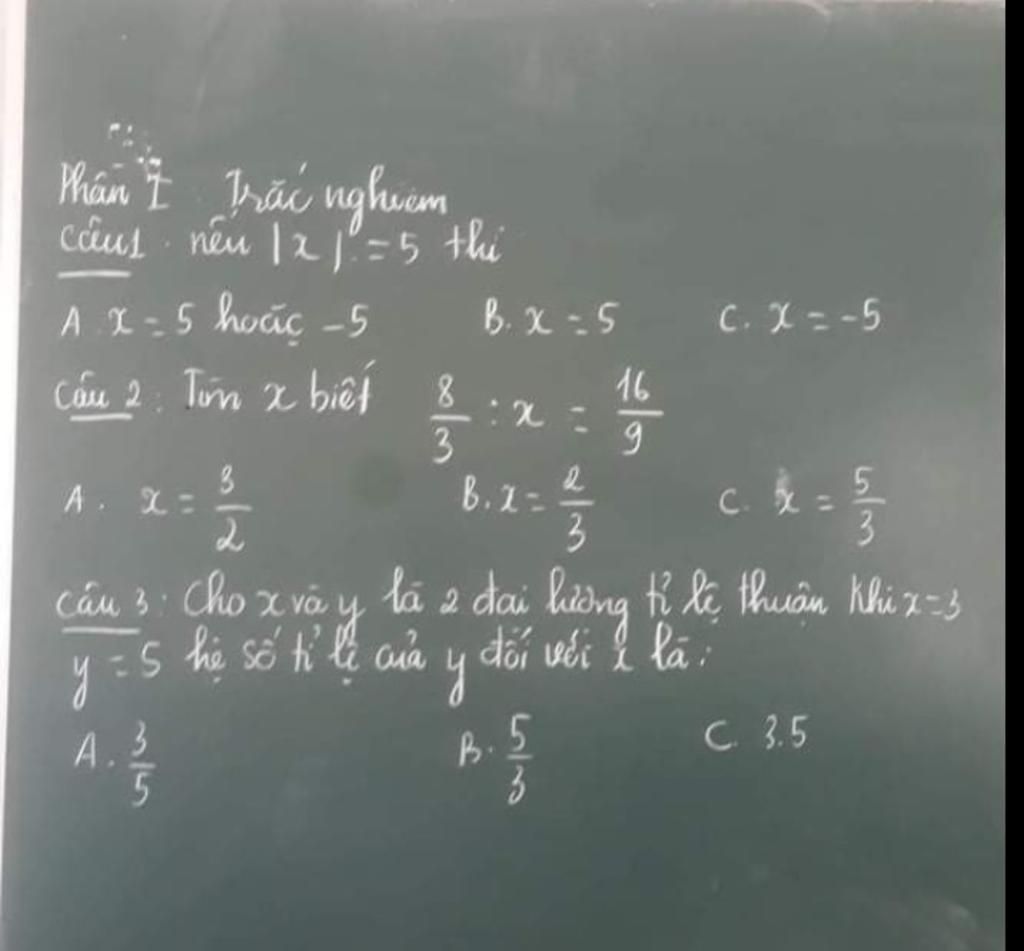 Phần I. Trắc nghiệm
Câu 1. nếu |x| = 5 thì
A. x = 5 hoặc -5 B. x = 5 C. x = -5
Câu 2: Tìm x biết 8/3 : x = 16/9
A. x = 3/2 B. x = 2/3 C. x = 5/3
Câu 3: Cho x và y là 2 đại lượng tỉ lệ thuận khi x = 3
y = 5 hệ số tỉ lệ của y đối với x là:
A. 3/5 B. 5/3 C. 3.5